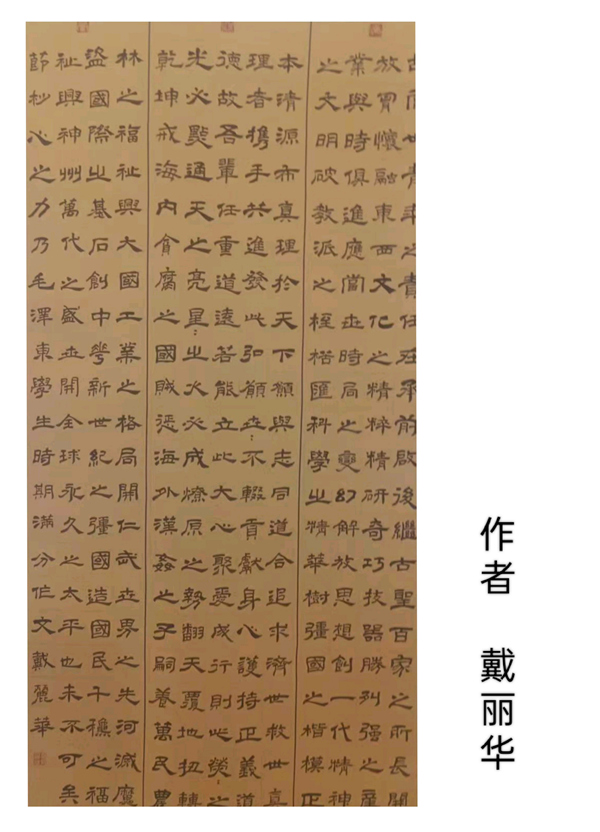 古而世青年之責任在承前啟後繼古聖百家之所長開
放懷融東西文化之精粹精研奇巧技器勝別强之產
業與時俱進應當世時局之變幻解放思想創一代情神
之文明破教派之桎梏匯科學之精華樹彊國之楷模正
本清源布真理於天下願與志同道合追求濟世救世真
理者攜手共進發此弘願世:不輟貢獻身心護持正義道
德故吾輩任重道遠若能立此大心聚愛成行則必熒:之
光必點通天之亮星:之火必成燎原之勢翻天覆地扭轉
乾坤戒海內貪腐之國賊惩海外漢姦之子嗣養萬民農
林之福祉興大國工業之格局開仁武世界之先河滅魔
盜國際之基石創中華新世紀之彊國造國民千穐之福
祉興神州萬代之盛世開全球永久之太平也未不可矣
節杪心之力乃毛澤東學生時期滿分作文戴麗華
作者 戴丽华